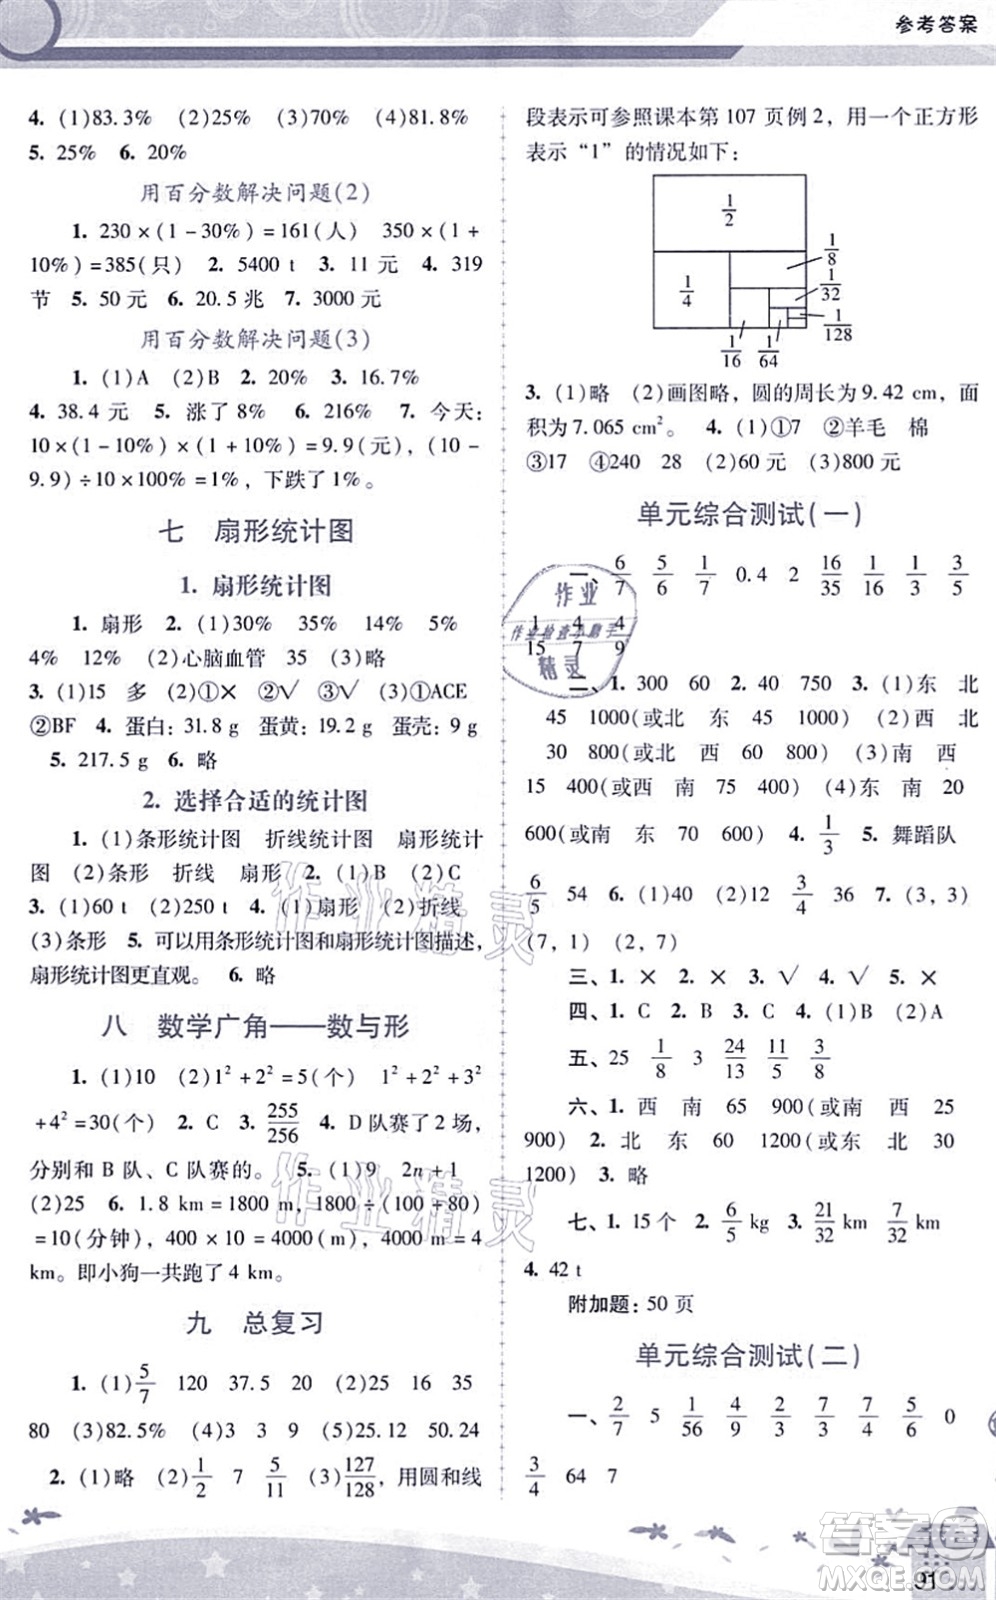 参考答案
4. (1)83.3% (2)25% (3)70% (4)81.8%
5. 25% 6. 20%
用百分数解决问题(2)
1. 230×(1-30%)=161(人) 350×(1+
10%)=385(只) 2. 5400 t 3. 11 元 4. 319
节 5. 50 元 6. 20.5 兆 7. 3000 元
用百分数解决问题(3)
1. (1)A (2)B 2. 20% 3. 16.7%
4. 38.4 元 5. 涨了 8% 6. 216% 7. 今天:
10×(1-10%)×(1+10%)=9.9(元),(10-
9.9)÷10×100%=1%,下跌了 1%。
七 扇形统计图
1. 扇形统计图
1. 扇形 2. (1)30% 35% 14% 5%
4% 12% (2)心脑血管 35 (3)略
3. (1)15 多 (2)①× ②√ ③√ (3)①ACE
②BF 4. 蛋白: 31.8 g 蛋黄: 19.2 g 蛋壳: 9 g
5. 217.5 g 6. 略
2. 选择合适的统计图
1. (1)条形统计图 折线统计图 扇形统计
图 (2)条形 折线 扇形 2. (1)B (2)C
3. (1)60 t (2)250 t 4. (1)扇形 (2)折线
(3)条形 5. 可以用条形统计图和扇形统计图描述,
扇形统计图更直观。 6. 略
八 数学广角——数与形
1. (1)10 (2)1²+2²=5(个) 1²+2²+3²
+4²=30(个) 2. C 3. 255/256 4. D 队赛了 2 场,
分别和 B 队、C 队赛的。 5. (1)9 2n+1
(2)25 6. 1.8 km=1800 m, 1800÷(100+80)
=10(分钟), 400×10=4000(m), 4000 m=4
km。即小狗一共跑了 4 km。
九 总复习
1. (1)5/7 120 37.5 20 (2)15 16 35
80 (3)82.5% (4)3 3 9 (5)25.12 50.24
2. (1)略 (2)1/2 7 5/11 (3)127/128,用圆和线
段表示可参照课本第 107 页例 2,用一个正方形
表示“1”的情况如下:
1/2
1/8
1/4
1/32
1/128
1/16 1/64
3. (1)略 (2)画图略,圆的周长为 9.42 cm,面
积为 7.065 cm²。 4. (1)①7 ②羊毛 棉
③17 ④240 28 (2)60 元 (3)800 元
单元综合测试(一)
一、6/7 5/6 1/7 0.4 2 16/35 1/16 1/3 3/5
1/15 4/7 4/9
二、1. 300 60 2. 40 750 3. (1)东 北
45 1000(或北 东 45 1000) (2)西 北
30 800(或北 西 60 800) (3)南 西
15 400(或西 南 75 400) (4)东 南 20
600(或南 东 70 600) 4. 1/3 5. 舞蹈队
6/5 54 6. (1)40 (2)12 3/4 36 7. (3, 3)
(7, 1) (2, 7)
三、1. × 2. × 3. √ 4. √ 5. ×
四、1. C 2. B 3. C 4. (1)B (2)A
五、25 1/8 3 24/13 11/5 3/8
六、1. 西 南 65 900(或南 西 25
900) 2. 北 东 60 1200(或东 北 30
1200) 3. 略
七、1. 15 个 2. 6/5 kg 3. 21/32 km 7/32 km
4. 42 t
附加题: 50 页
单元综合测试(二)
一、2/7 5 1/56 4/9 2/3 7/3 7/4 5/6 0
3/4 64 7
作业
作业检查小助手
精灵
作业精灵
作业精灵
答案圈
MXQE.COM
91